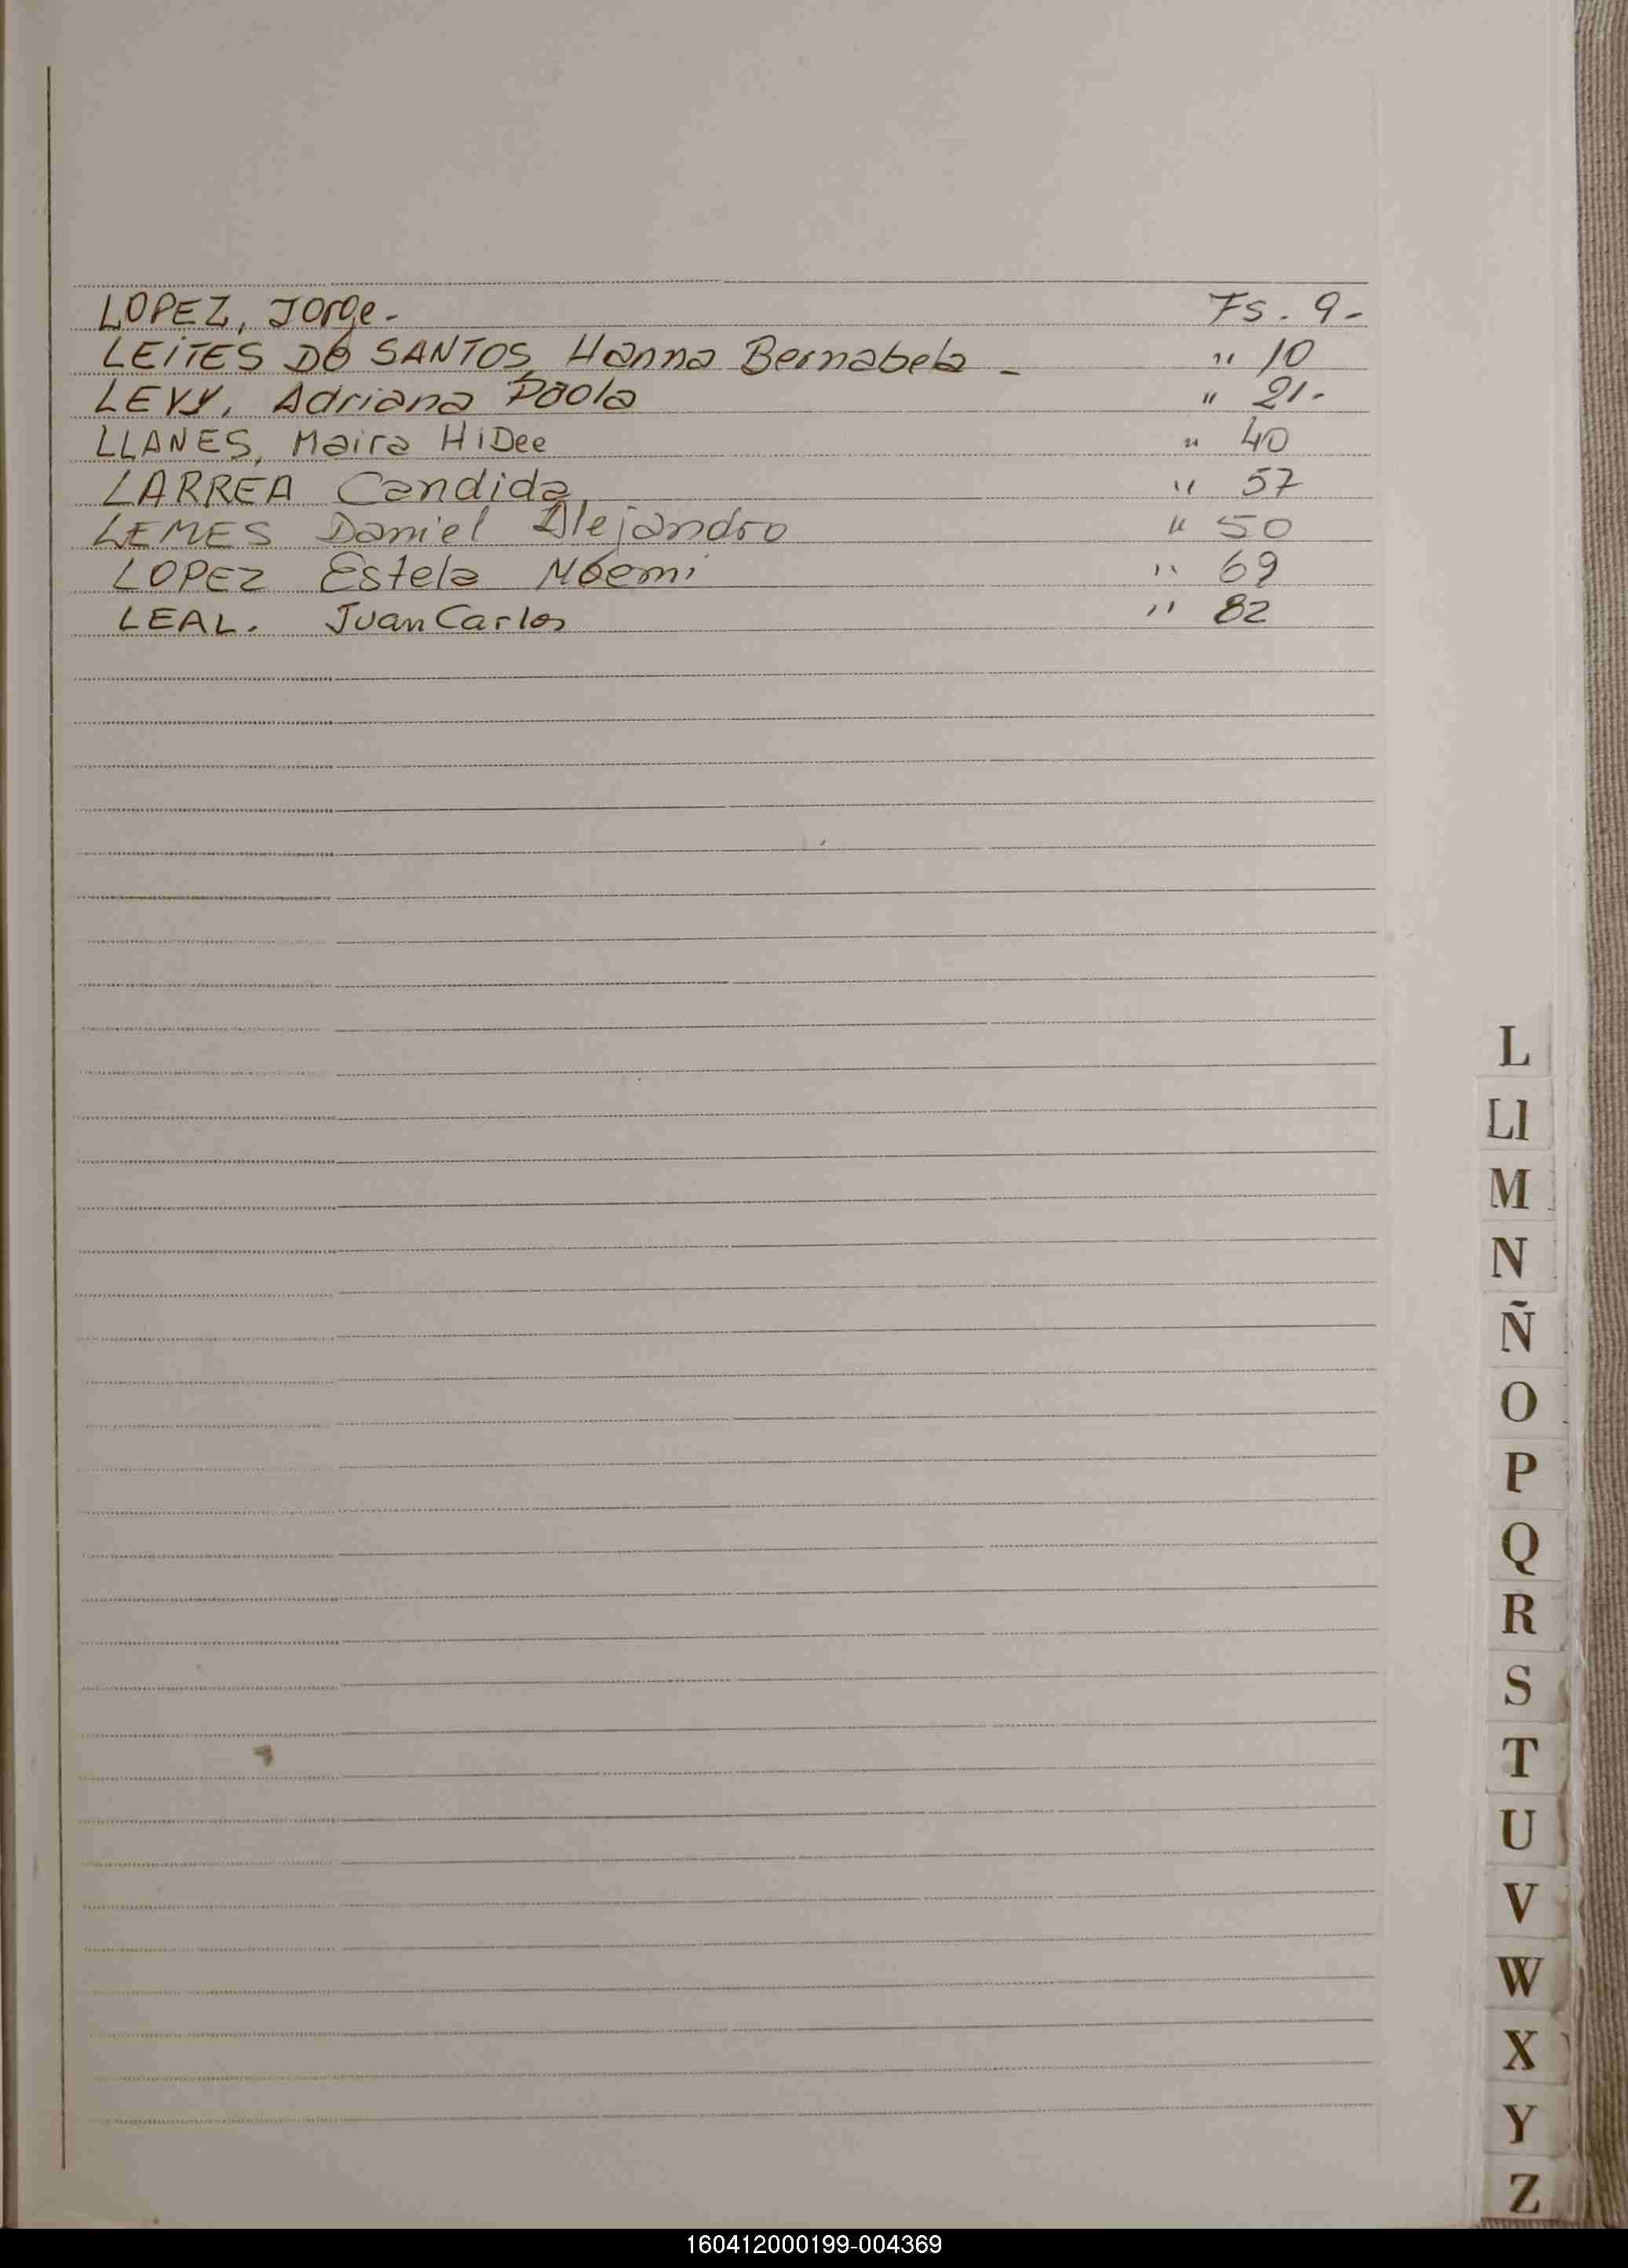 LOPEZ, Jorge.- Fs. 9-
LEiTES DO SANTOS, Hanna Bernabela - " 10
LEVY, Adriana Paola " 21-
LLANES, Maira HiDee " 40
LARREA Candida, " 57
LEMES Daniel Alejandro " 50
LOPEZ Estela Nóemi " 69
LEAL. Juan Carlos " 82
L
Ll
M
N
Ñ
O
P
Q
R
S
T
U
V
W
X
Y
Z
160412000199-004369